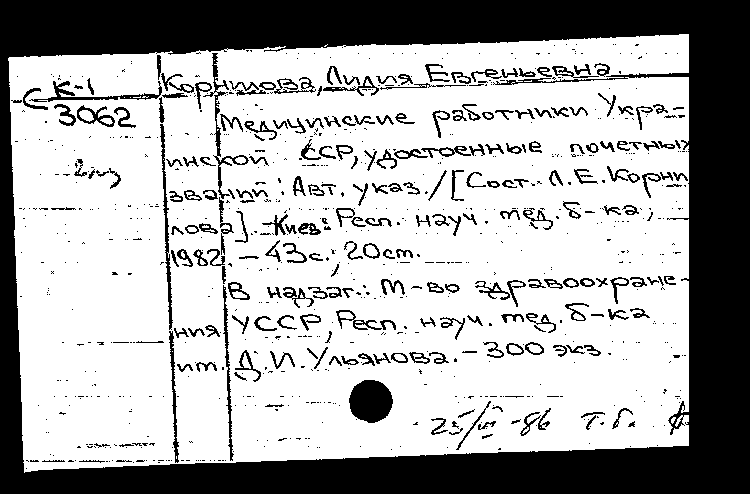 К-1 Корнилова, Лидия Евгеньевна.
С 3062
Медицинские работники Укра-
инской ССР, удостоенные почетных
2 экз
званий : Авт. указ. / [Сост. Л.Е. Корни
лова]. - Киев : Респ. науч. мед. б-ка,
1982. - 43 с.; 20 см.
В надзаг.: М-во здравоохране-
ния УССР, Респ. науч. мед. б-ка
им. Д.И. Ульянова. - 300 экз.
25/III -86 т.б.